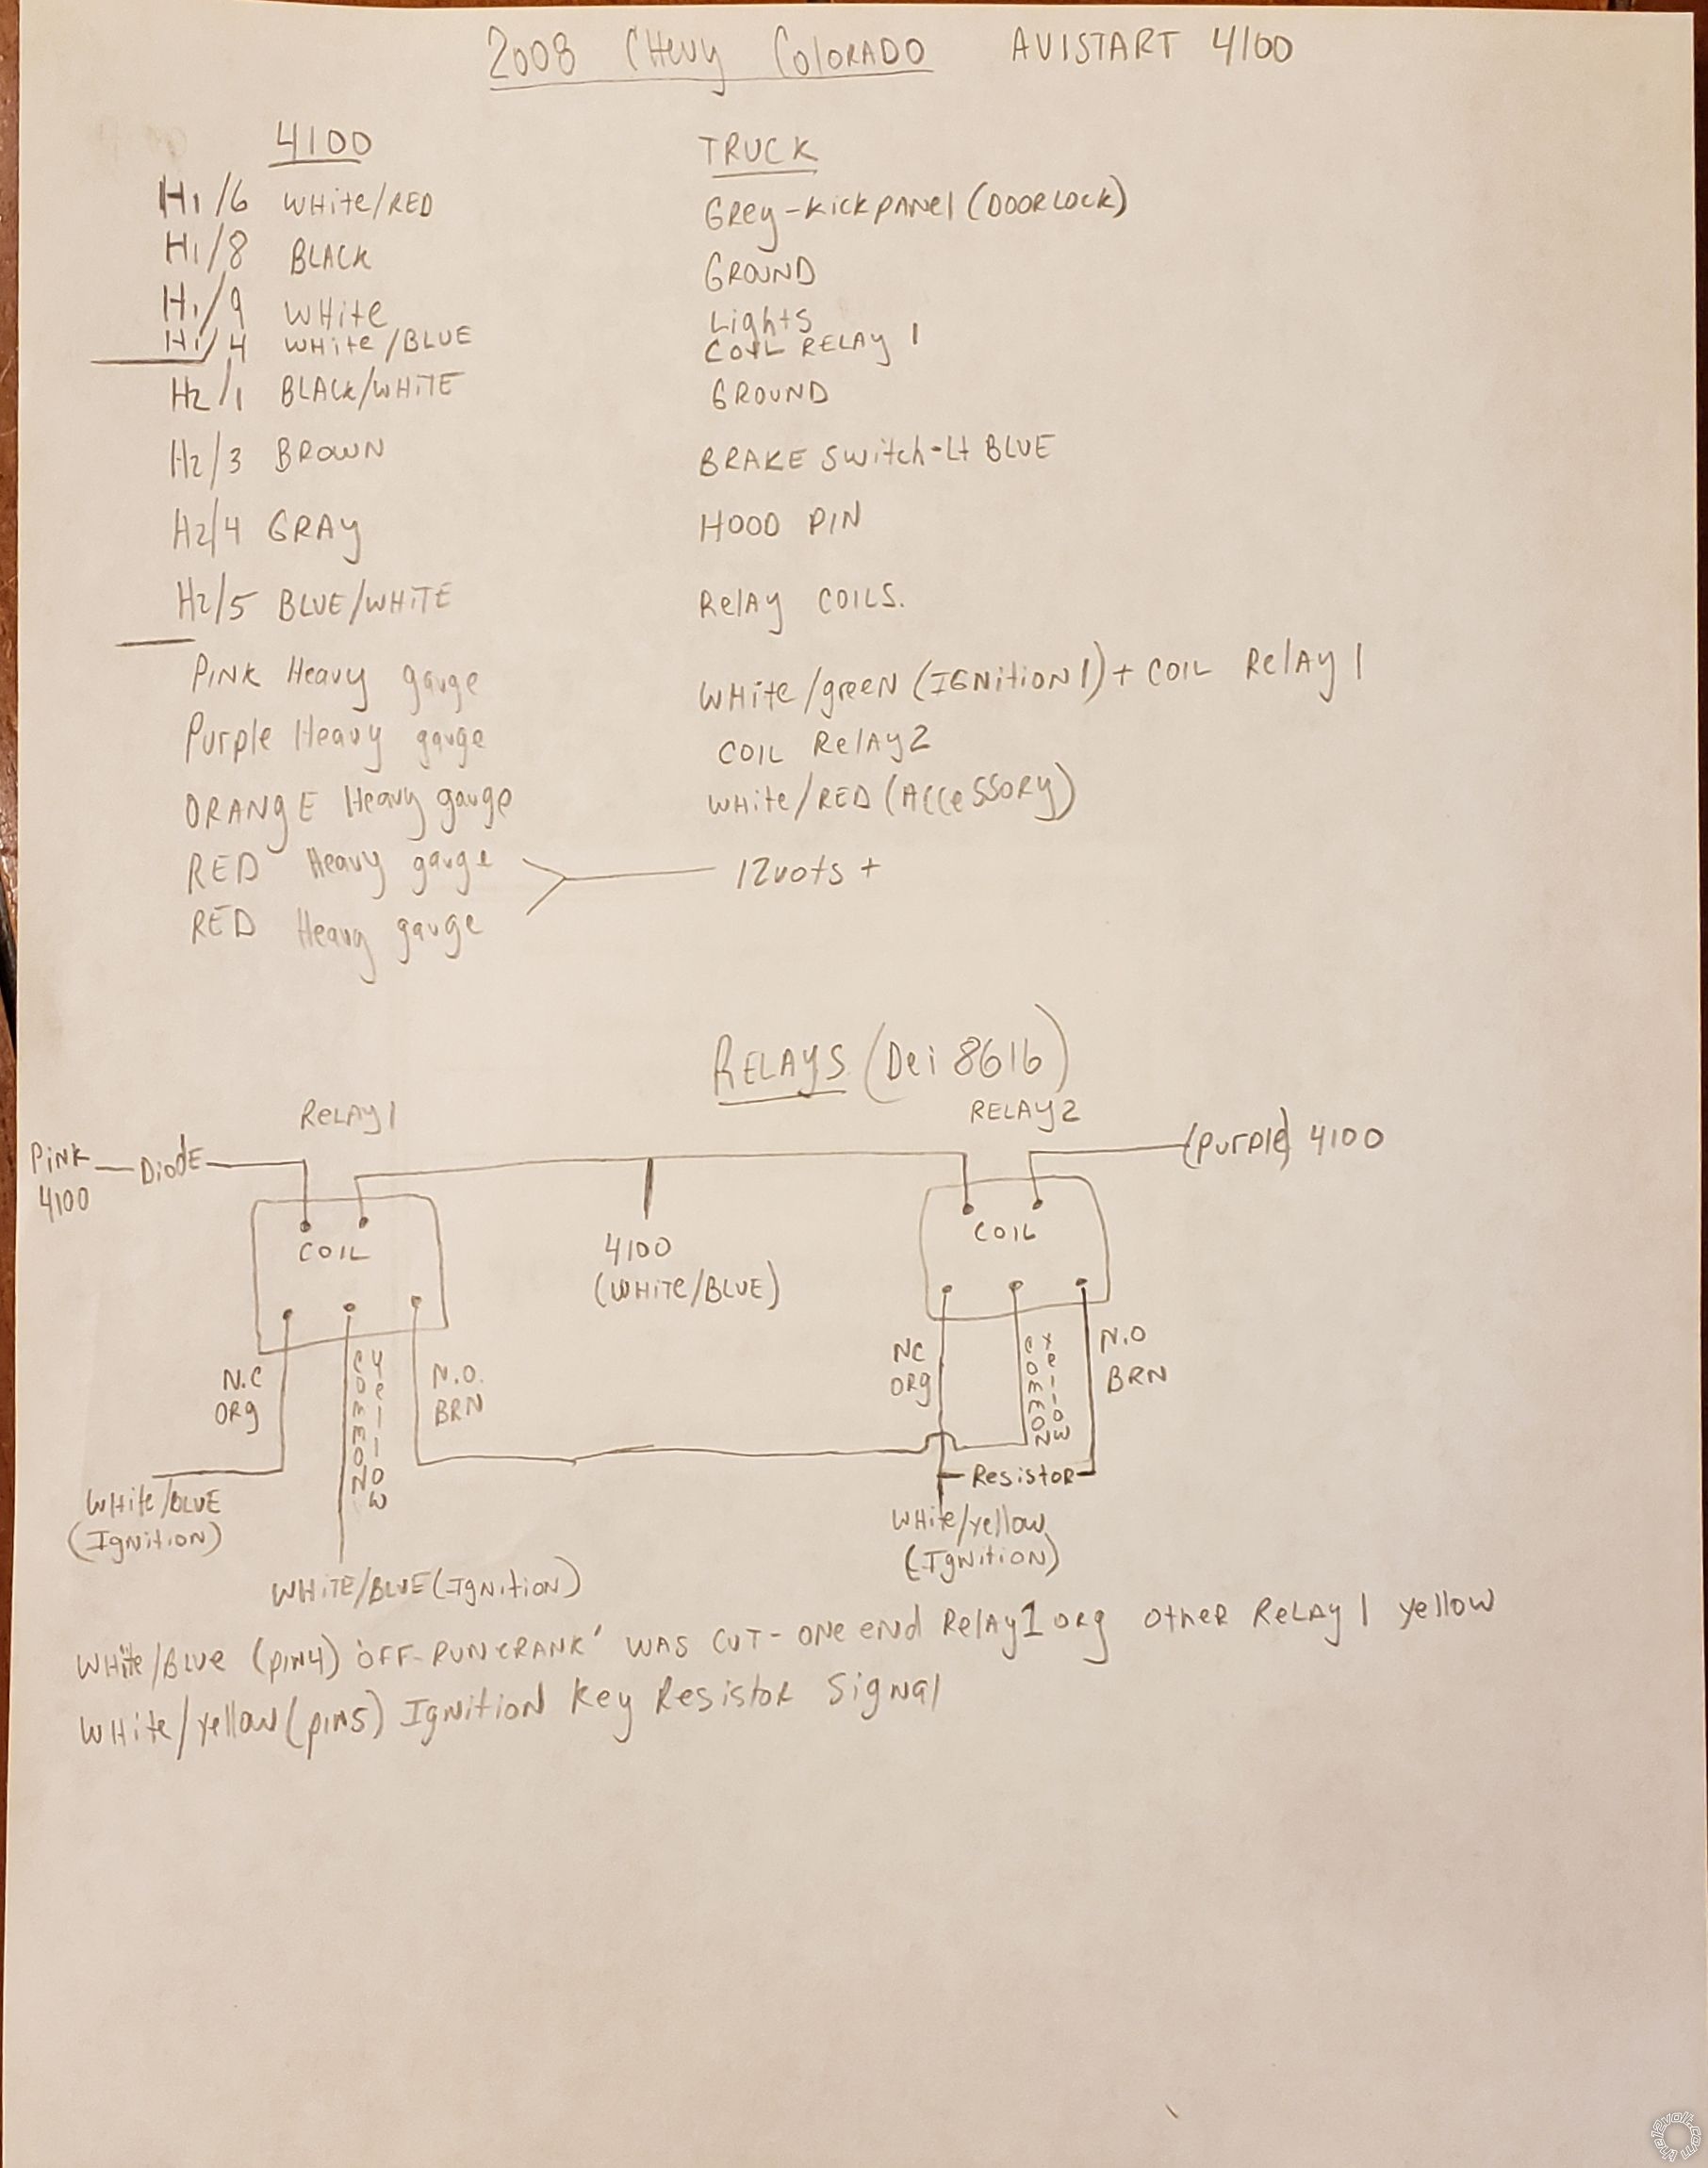 2008 CHevy COlORADO AVISTART 4100
4100 TRUCK
H1/6 WHite/RED GRey-KicKpANel (DOORLOCK)
H1/8 BLACK GROUND
H1/9 WHite Lights
H1/4 WHite/BLUE COIL RELAY 1
H2/1 BLACK/WHITE GROUND
H2/3 BROWN BRAKE Switch-Lt BLUE
H2/4 GRAY HOOD PIN
H2/5 BLUE/WHITE RelAy COILS.
PiNK Heavy gauge WHite/greeN (IGNitiON1)+ COIL RelAy 1
Purple Heavy gauge COIL RelAy2
ORANgE Heavy gauge WHite/RED (ACCeSSORy)
RED Heavy gauge 12vots +
RED Heavy gauge
RELAYS (Dei 8616)
ReLAy1 RELAY2
PiNK DiodE (purple) 4100
4100
COIL COIL
4100
(WHITe/BLUE)
N.C N.O. NC N.O
ORg BRN ORg BRN
COMMON yellow COMMON yellow
Resistor
WHite/BLUE WHite/yellow
(IgNitiON) (IgNitiON)
WHiTE/BLUE(IgNitiON)
WHite/BLUE (piN4) 'OFF-RUN-CRANK' WAS CUT- ONE eNd RelAy1 ORg OtHeR ReLAy 1 yelloW
WHite/yellow (piN5) IgNitioN Key ResistoR SigNAl
the12volt.com